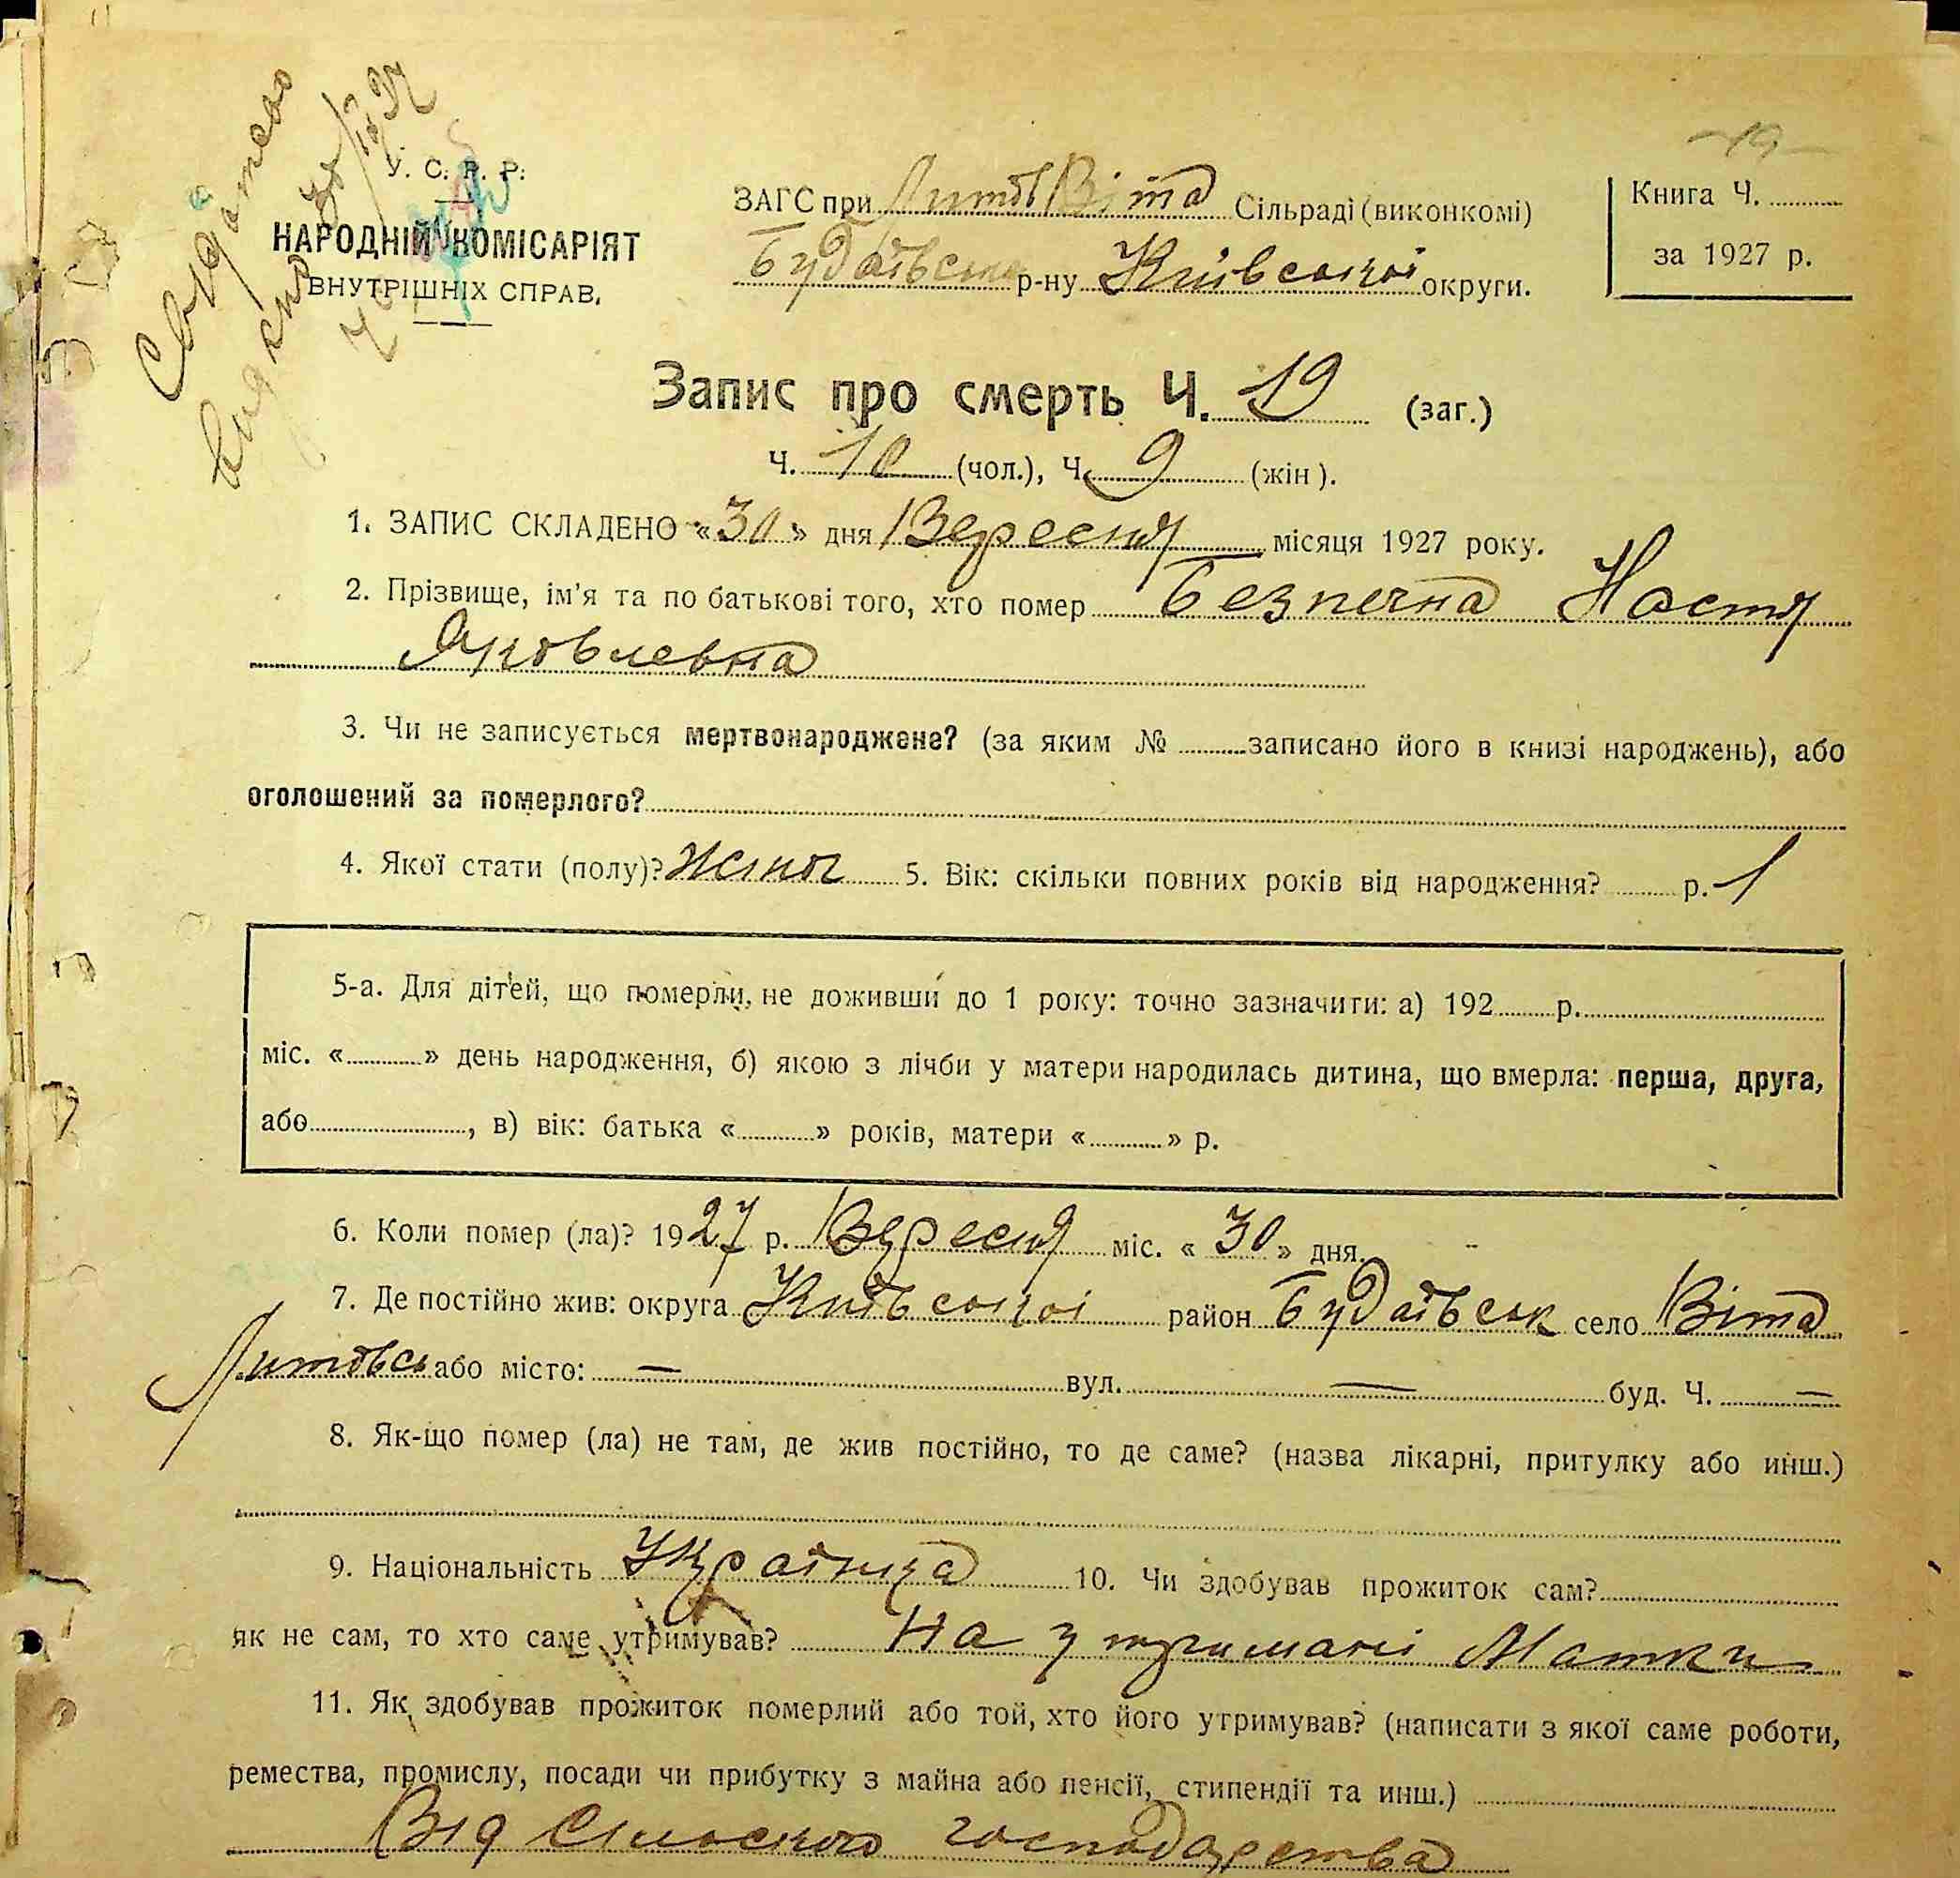 Свидітево
видано
30/IX 27
-19-
У. С. Р. Р.
НАРОДНІЙ КОМІСАРІЯТ
ВНУТРІШНІХ СПРАВ.
ЗАГС при Литов Віта Сільраді (виконкомі)
Будаївсько р-ну Київської округи.
Книга Ч.
за 1927 р.
Запис про смерть Ч. 19 (заг.)
Ч. 10 (чол.), Ч. 9 (жін).
1. ЗАПИС СКЛАДЕНО «30» дня Вересня місяця 1927 року.
2. Прізвище, ім'я та по батькові того, хто помер Безпечна Настя
Яковлевна
3. Чи не записується мертвонароджене? (за яким № записано його в книзі народжень), або
оголошений за померлого?
4. Якої стати (полу)? Жіноч 5. Вік: скільки повних років від народження? р. 1
5-а. Для дітей, що померли, не доживши до 1 року: точно зазначити: а) 192 р.
міс. « » день народження, б) якою з лічби у матери народилась дитина, що вмерла: перша, друга,
або , в) вік: батька « » років, матери « » р.
6. Коли помер (ла)? 1927 р. Вересня міс. «30» дня.
7. Де постійно жив: округа Київської район Будаївськ село Віта
Литовсь або місто: — вул. — буд. Ч. —
8. Як-що помер (ла) не там, де жив постійно, то де саме? (назва лікарні, притулку або инш.)
9. Національність Українка 10. Чи здобував прожиток сам?
як не сам, то хто саме утримував? На утримані Матки
11. Як здобував прожиток померлий або той, хто його утримував? (написати з якої саме роботи,
ремества, промислу, посади чи прибутку з майна або пенсії, стипендії та инш.)
Від сільского господарства